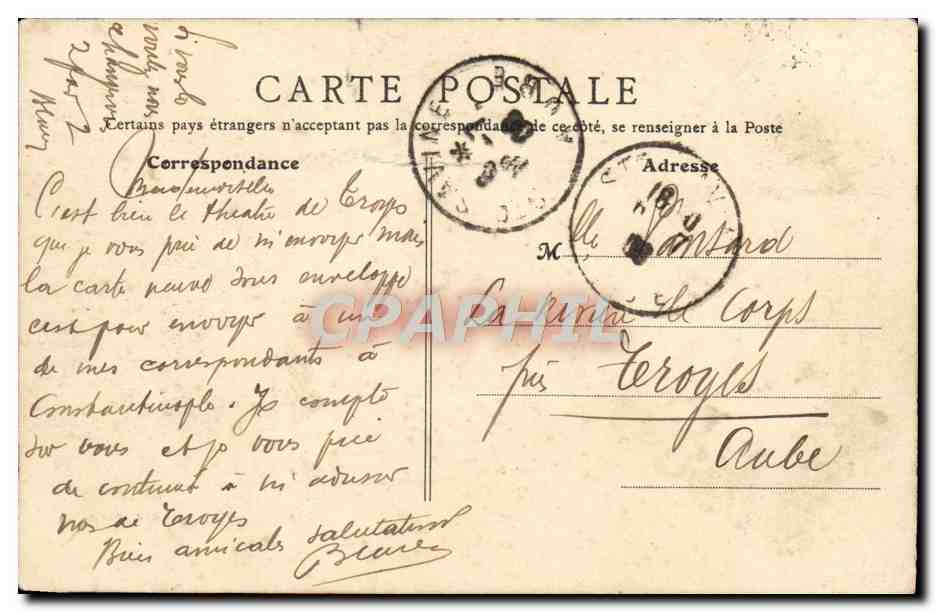 Si vous le
voulez nous
échangerons
2 par 2
CARTE POSTALE
Certains pays étrangers n'acceptant pas la correspondance de ce côté, se renseigner à la Poste
Correspondance
Adresse
Mademoiselle
C'est bien le théatre de Troyes
que je vous prie de m'envoyer mais
la carte neuve sous enveloppe
c'est pour envoyer à un
de mes correspondants à
Constantinople. Je compte
sur vous et je vous prie
de continuer à m'adresser
vues de Troyes
Bien amicales salutations
M lle
La Rivière de Corps
près Troyes
Aube
CPAPHIL